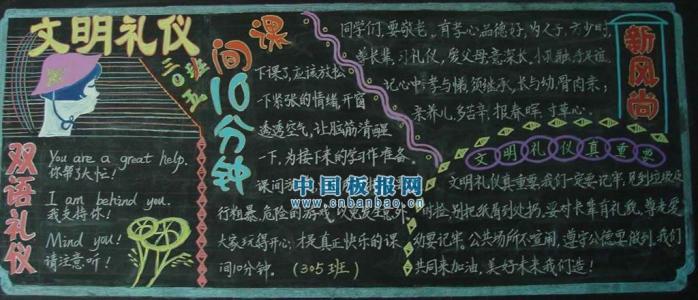 文明礼仪
三〇五班
双语礼仪
You are a great help.
你帮了大忙!
I am behind you.
我支持你!
Mind you!
请注意听!
课间10分钟
下课了,应该放松一
下紧张的情绪,开窗
透透空气,让脑筋清醒
一下,为接下来的学习作准备。
课间
行粗暴、危险的游戏,以免发生意外,
大家玩得开心,才是真正快乐的课
间10分钟。(305班)
中国板报网
www.cnbanbao.cn
新风尚
同学们,要敬老,有孝心品德好,为人子,方少时,
学长辈,习礼仪,爱父母,意深长,
记心中,孝与悌,须继承,长与幼,骨肉亲;
亲养儿,多苦辛,报春晖,寸草心。
文明礼仪真重要
文明礼仪真重要,我们一定要记牢,见到垃圾
别把纸屑到处扔,要对长辈有礼貌,尊老爱
幼要记牢,公共场所不喧闹,遵守公德要做到,我们
共同来加油,美好未来我们造!